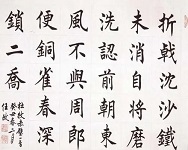 折戟沈沙鐵
未消自將磨
洗認前朝東
風不與周郎
便銅雀春深
鎖二喬
杜牧赤壁
任政